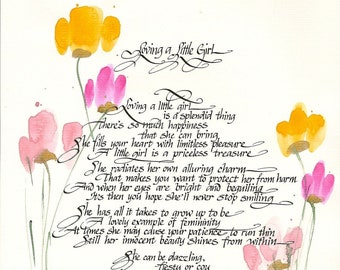 Loving a Little Girl
Loving a little girl
is a splendid thing
there's so much happiness
that she can bring
She fills your heart with limitless pleasure
A little girl is a priceless treasure
She radiates her own alluring charm
That makes you want to protect her from harm
And when her eyes are bright and beguiling
It's then you hope she'll never stop smiling
She has all it takes to grow up to be
A lovely example of femininity
At times she may cause your patience to run thin
Still her innocent beauty shines from within
She can be dazzling,
fiesty or coy